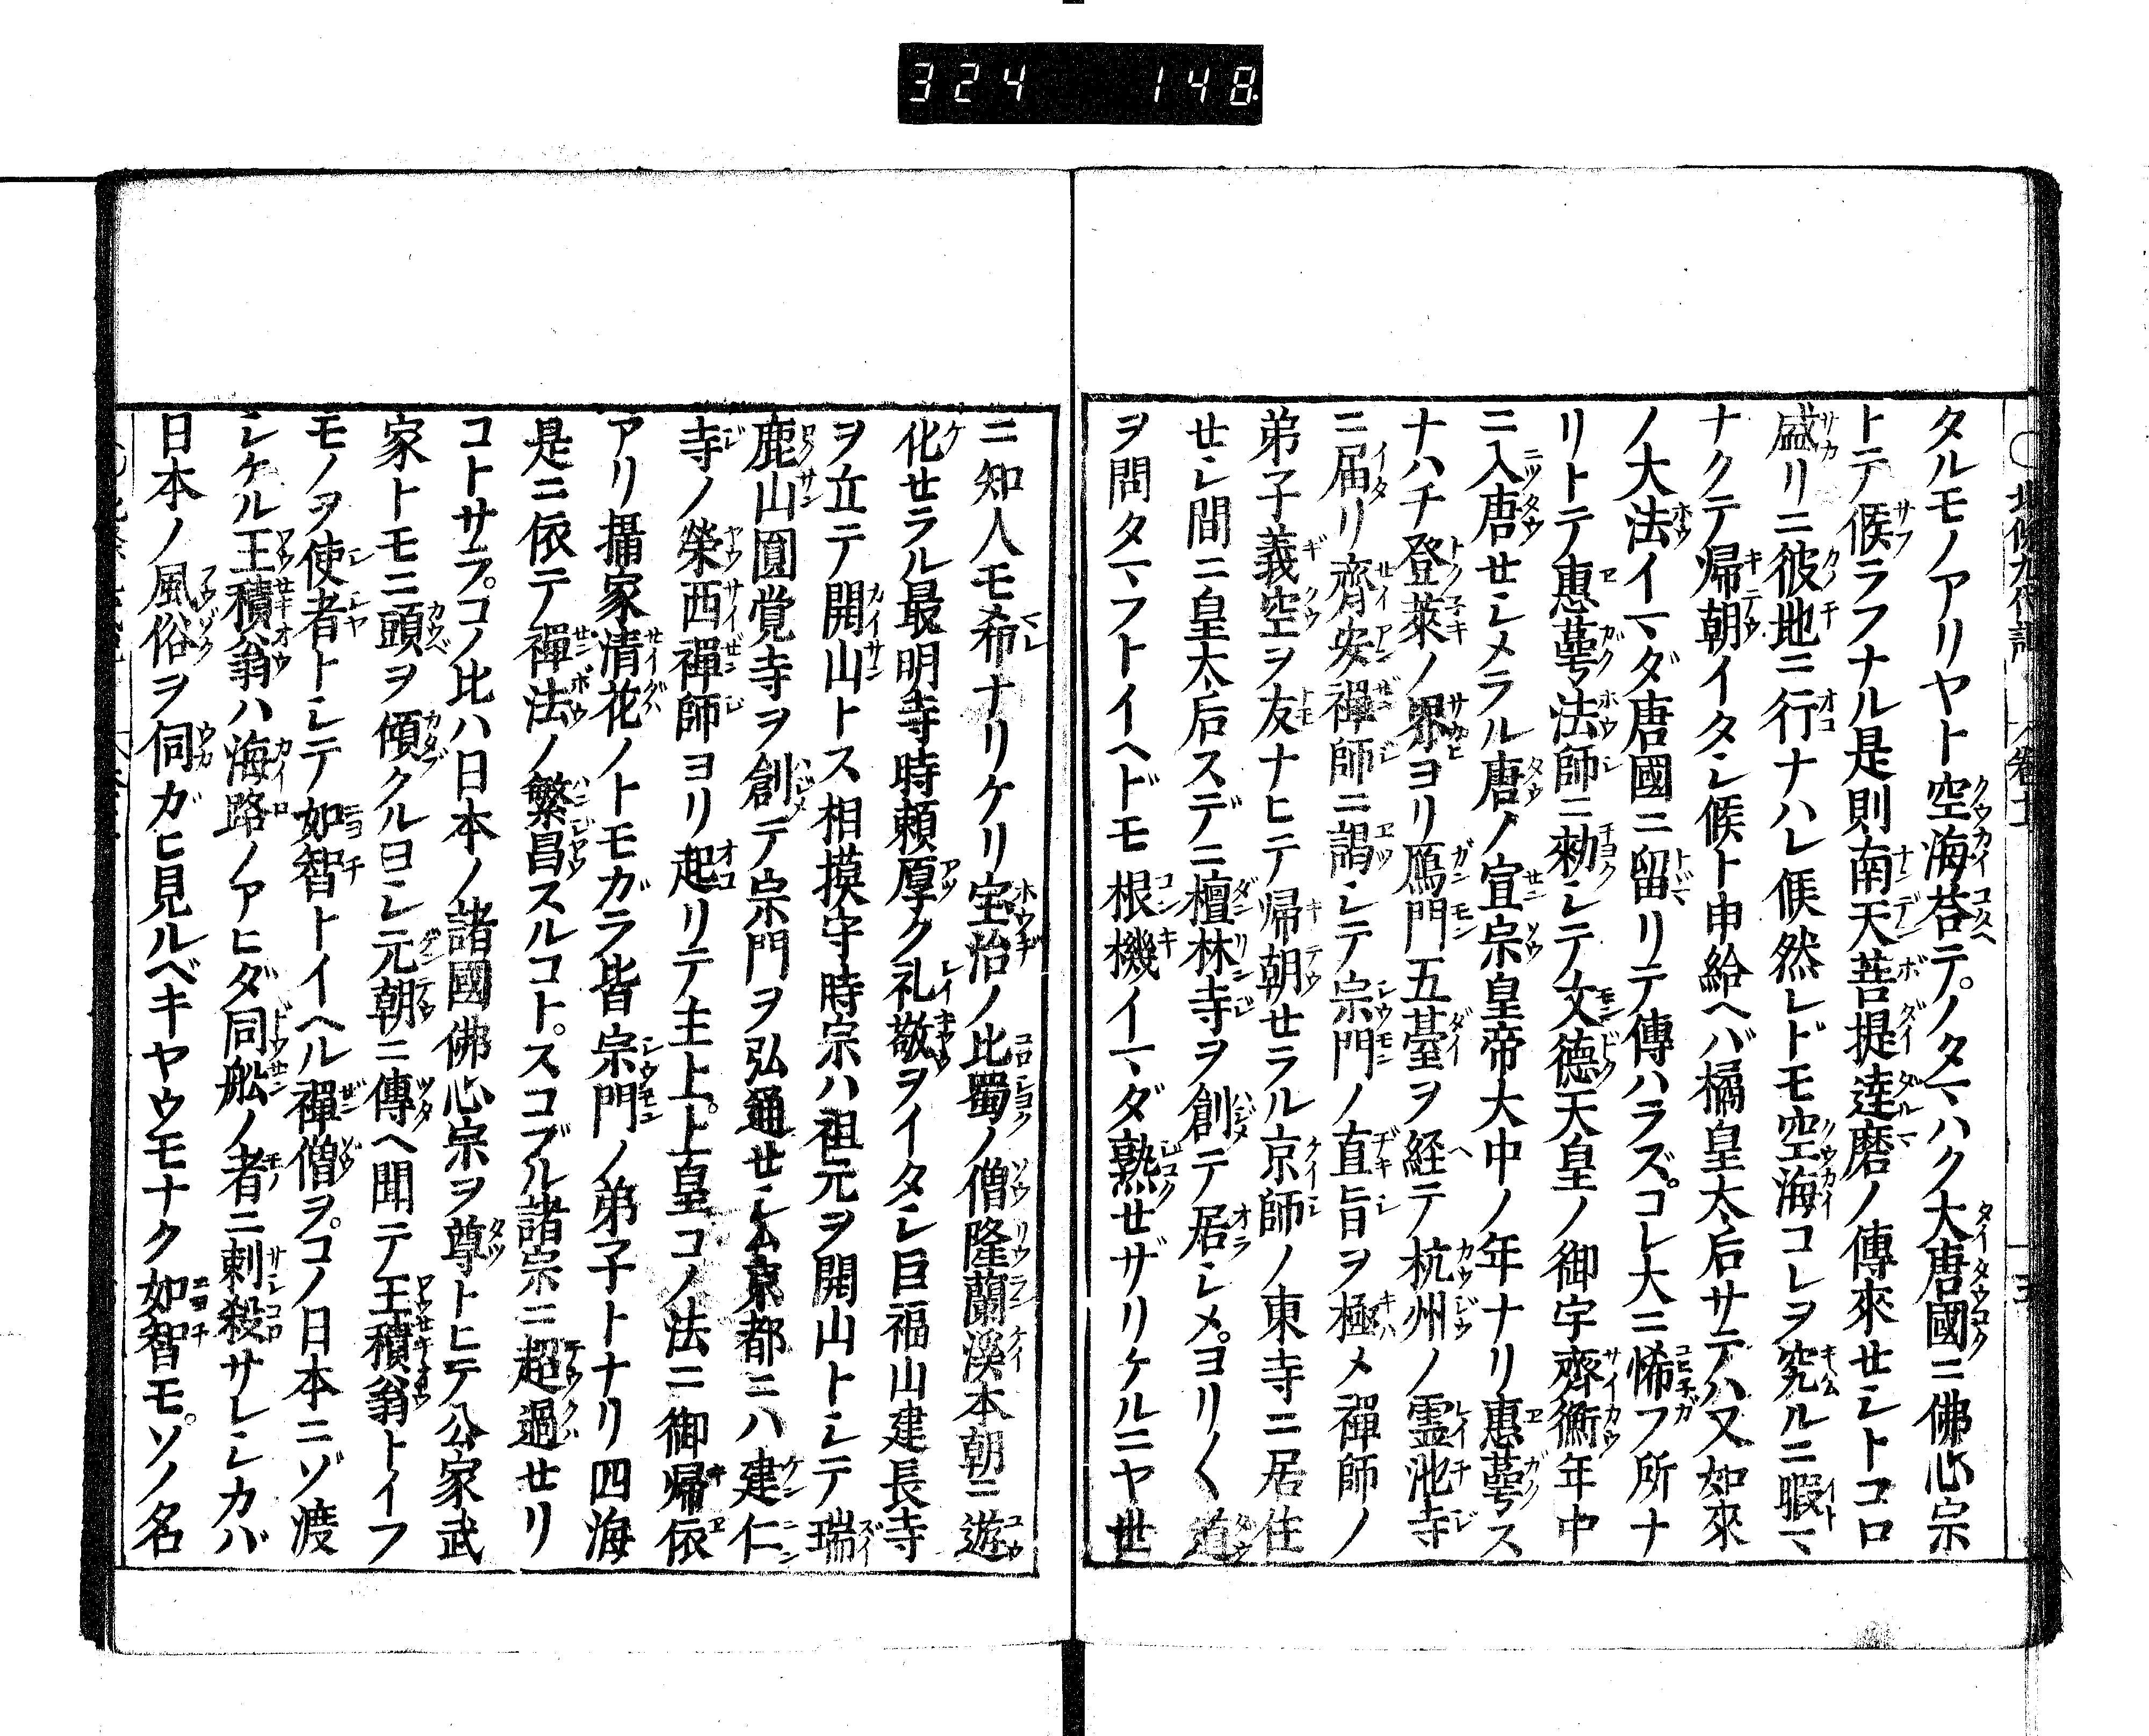 324 148
北條九代記 卷十
タルモノアリヤト空海荅テノタマハク大唐國ニ佛心宗
トテ候ラフナル是則南天菩提達磨ノ傳來せシトコロ
盛リニ彼地ニ行ナハレ候然レドモ空海コレヲ究ルニ暇マ
ナクテ帰朝イタシ候ト申給ヘバ橘皇太后サテハ又如來
ノ大法イマダ唐國ニ留リテ傳ハラズコレ大ニ悕フ所ナ
リトテ惠萼法師ニ勅シテ文德天皇ノ御宇齊衡年中
ニ入唐せシメラル唐ノ宣宗皇帝大中ノ年ナリ惠萼ス
ナハチ登萊ノ界ヨリ鴈門五臺ヲ経テ杭州ノ霊池寺
ニ届リ齊安禪師ニ謁シテ宗門ノ直旨ヲ極メ禪師ノ
弟子義空ヲ友ナヒテ帰朝せラル京師ノ東寺ニ居住
せシ間ニ皇太后スデニ檀林寺ヲ創テ居ラシメヨリ〳〵道
ヲ問タマフトイヘドモ根機イマダ熟せザリケルニヤ世
ニ知人モ希ナリケリ宝治ノ比蜀ノ僧隆蘭溪本朝ニ遊
化せラル最明寺時頼厚ク礼敬ヲイタシ巨福山建長寺
ヲ立テ開山トス相摸守時宗ハ祖元ヲ開山トシテ瑞
鹿山圓覚寺ヲ創テ宗門ヲ弘通せシム京都ニハ建仁
寺ノ榮西禪師ヨリ起リテ主上上皇コノ法ニ御帰依
アリ攝家清花ノトモガラ皆宗門ノ弟子トナリ四海
是ニ依テ禪法ノ繁昌スルコトスコブル諸宗ニ超過せリ
コトサラコノ比ハ日本ノ諸國佛心宗ヲ尊トヒテ公家武
家トモニ頭ヲ傾クルヨシ元朝ニ傳ヘ聞テ王積翁トイフ
モノヲ使者トシテ如智トイヘル禪僧ヲコノ日本ニゾ渡
シケル王積翁ハ海路ノアヒダ同舩ノ者ニ刺殺サレシカバ
日本ノ風俗ヲ伺ガヒ見ルベキヤウモナク如智モソノ名